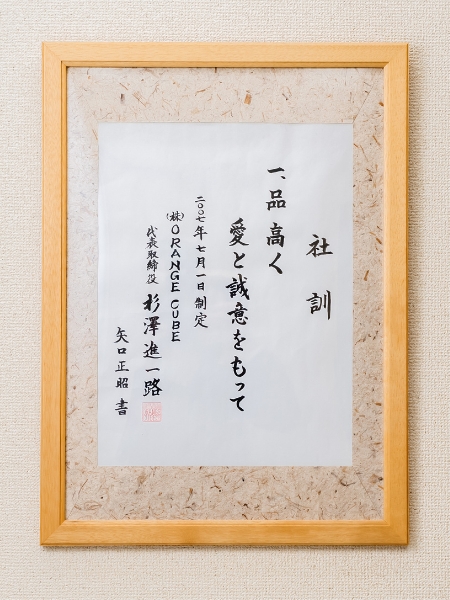 社訓
一、品高く
愛と誠意をもって
二〇〇七年七月一日制定
(株)ORANGE CUBE
代表取締役 杉澤進一路
矢口正昭書